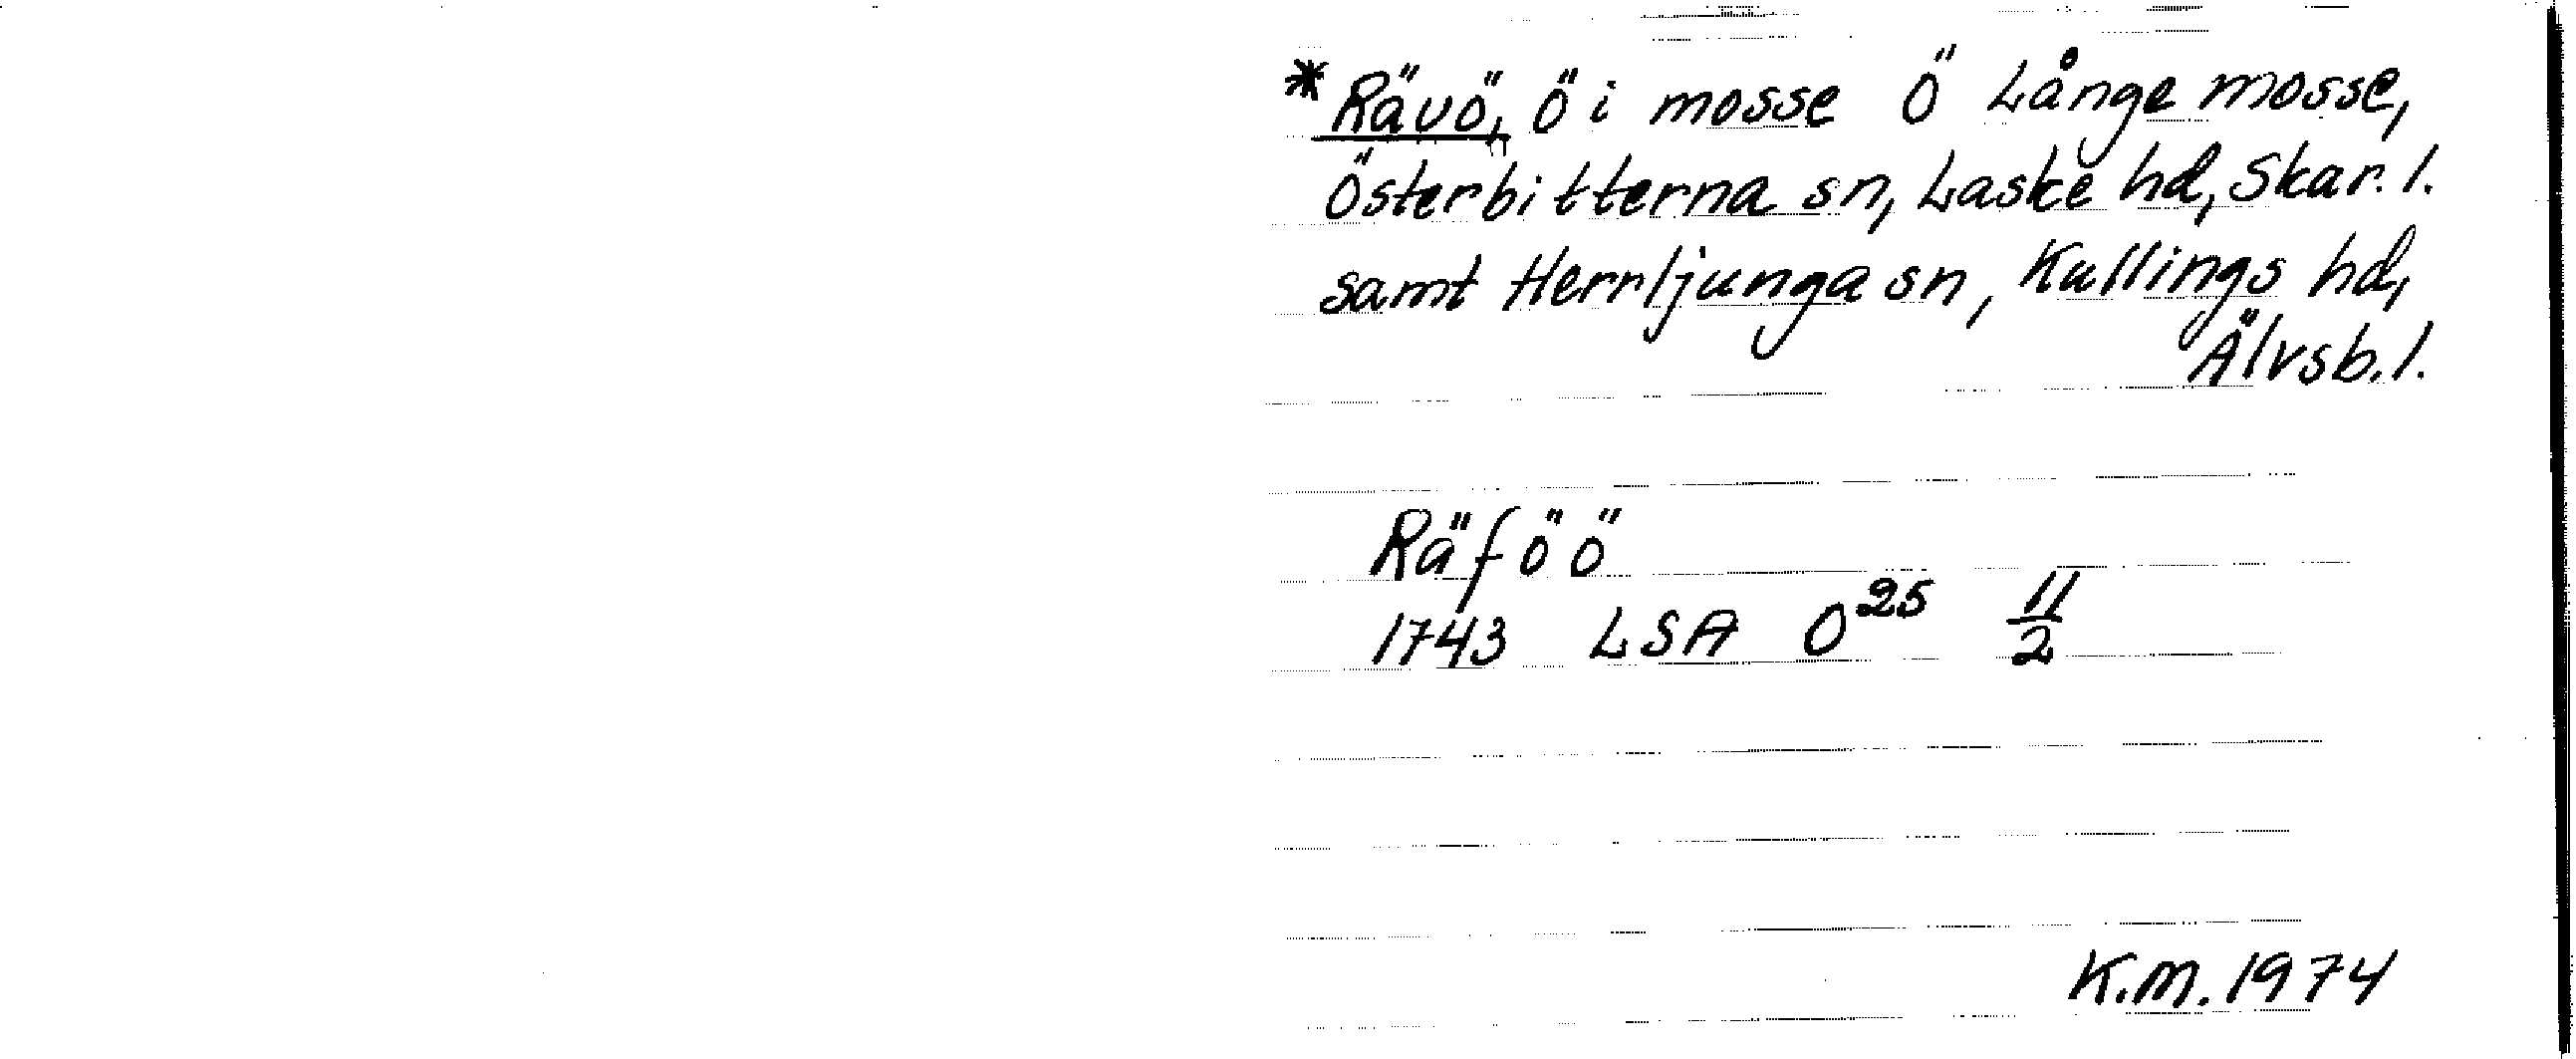 * Rävö, ö i mosse Ö Långe mosse,
Österbitterna sn, Laske hd, Skar. l.
samt Herrljunga sn, Kullings hd,
Älvsb. l.
Räföö
1743 LSA O²⁵ 11/2
K.M. 1974